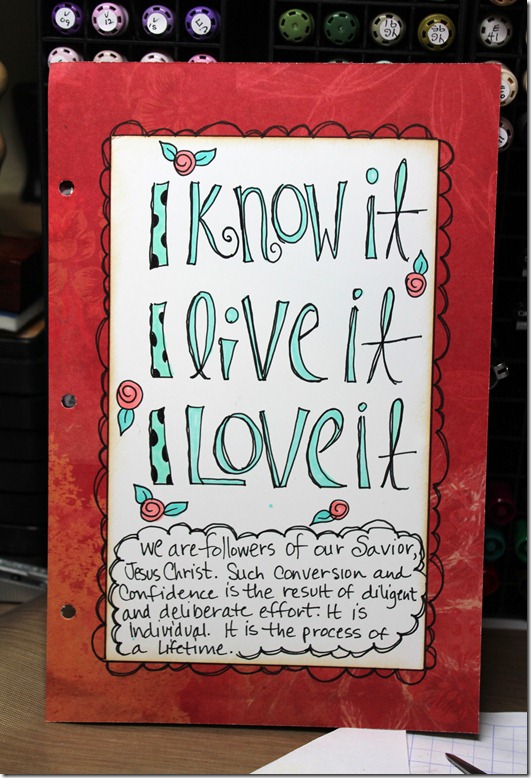 V
09
V
12
V
15
V
91
YG
95
YG
E
41
I know it
I live it
I Love it
We are followers of our Savior,
Jesus Christ. Such Conversion and
Confidence is the result of diligent
and deliberate effort. It is
Individual. It is the process of
a Lifetime.